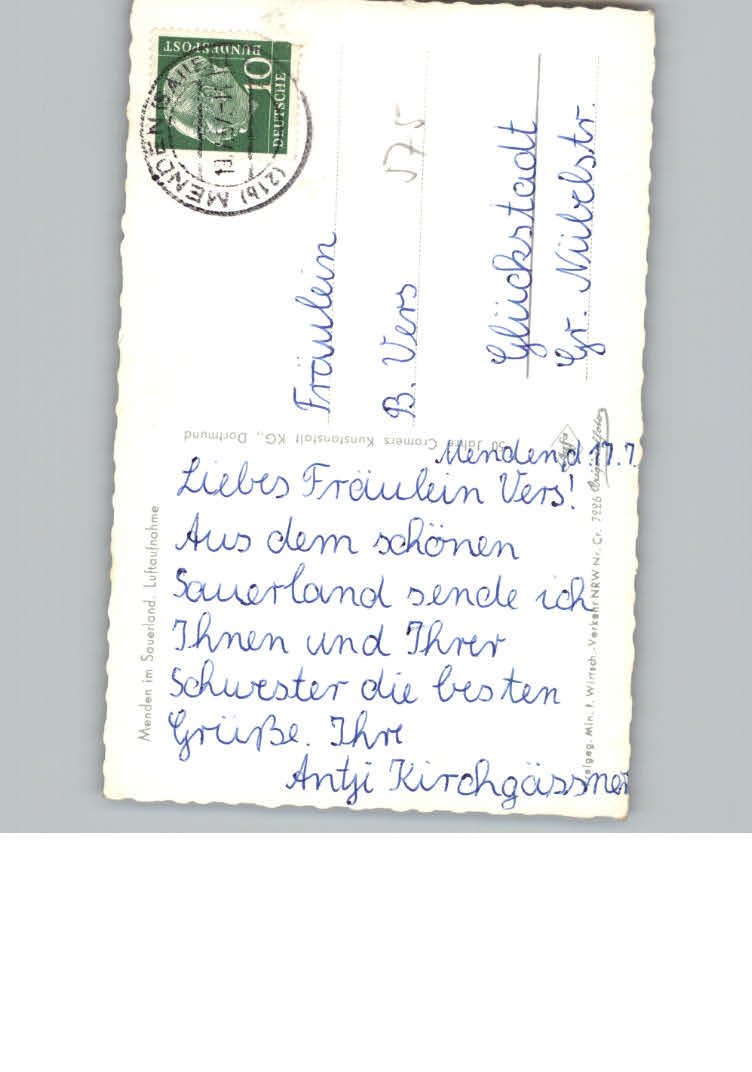 Menden, d. 17.7.
Liebes Fräulein Vers!
Aus dem schönen
Sauerland sende ich
Ihnen und Ihrer
Schwester die besten
Grüße. Ihre
Antji Kirchgässner
Fräulein
B. Vers
Glückstadt
Gr. Nübelstr.
575
DEUTSCHE
BUNDESPOST
10
(21b) MENDEN
Menden im Sauerland. Luftaufnahme
50 Jahre Cramers Kunstanstalt KG., Dortmund
Min. f. Wirtsch. Verkehr NRW Nr. Cr. 7226